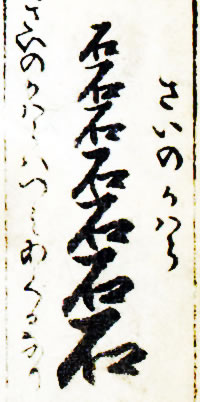 さいのかハら
石石石石石石石
さいのかハらハつミあくる